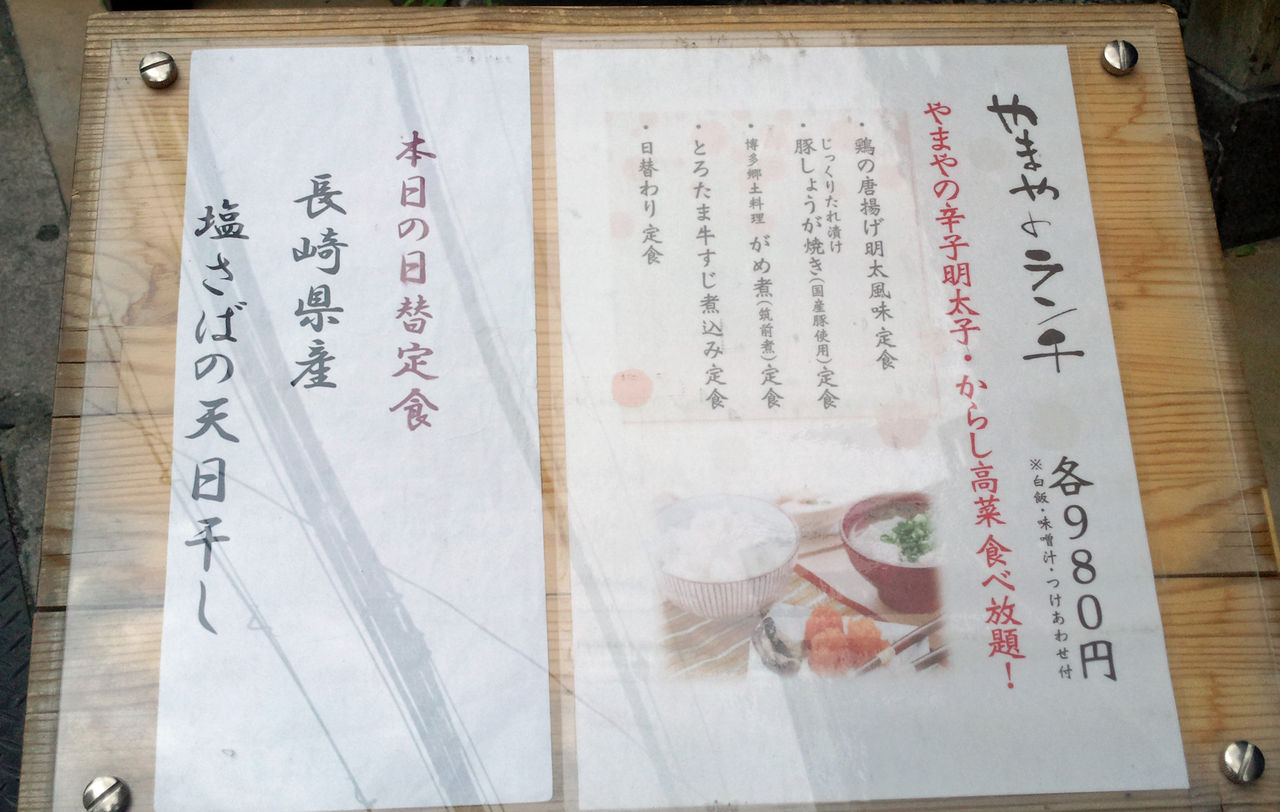 やまやのランチ
各980円
※白飯・味噌汁・つけあわせ付
やまやの辛子明太子・からし高菜食べ放題！
・鶏の唐揚げ明太風味定食
じっくりたれ漬け
・豚しょうが焼き(国産豚使用)定食
・博多郷土料理 がめ煮(筑前煮)定食
・とろたま牛すじ煮込み定食
・日替わり定食
本日の日替定食
長崎県産
塩さばの天日干し